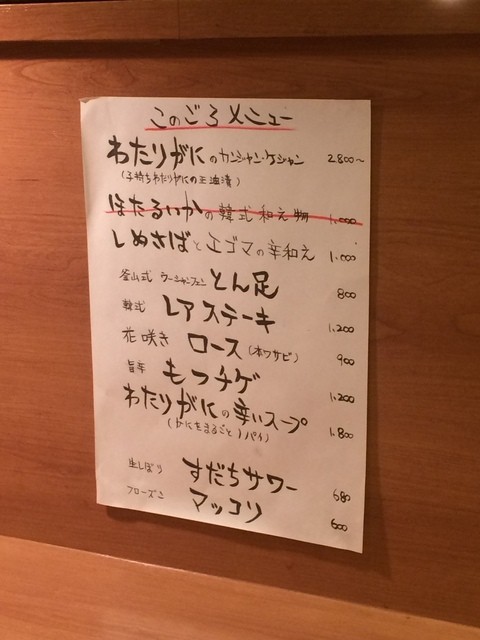 このごろメニュー
わたりがにのカンジャン・ケジャン 2800〜
(子持ちわたりがにの正油漬)
ほたるいかの韓式和え物 1,000
しめさばとエゴマの辛和え 1,000
釜山式 ウーシャンフェン とん足 800
韓式 レアステーキ 1,200
花咲き ロース (本ワサビ) 900
旨辛 もつチゲ 1,200
わたりがにの辛いスープ 1,800
(かにをまるごと1パイ)
生しぼり すだちサワー 680
フローズン マッコリ 600